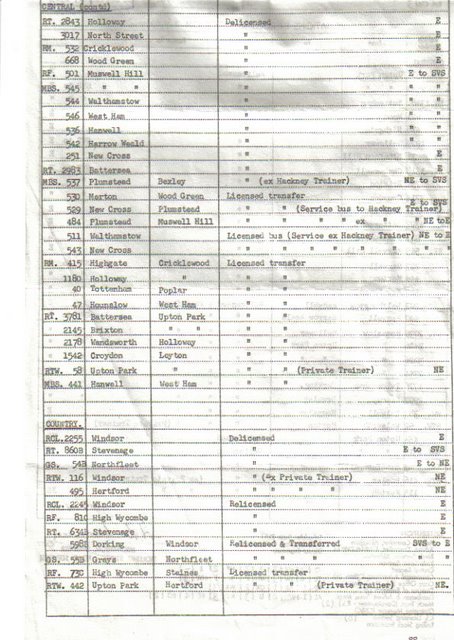 CENTRAL (contd)
RT. 2843 Holloway Delicensed E
3017 North Street " E
RM. 532 Cricklewood " E
668 Wood Green " E
RF. 501 Muswell Hill " E to SVS
MBS. 545 " " "
" 544 Walthamstow "
546 West Ham "
536 Hanwell "
542 Harrow Weald "
251 New Cross " E
RT. 2983 Battersea " E
MBS. 537 Plumstead Bexley " (ex Hackney Trainer) NE to SVS
530 Merton Wood Green Licensed transfer E to SVS
529 New Cross Plumstead " " (Service bus to Hackney Trainer)
484 Plumstead Muswell Hill " " " " ex " " NE to E
511 Walthamstow Licensed bus (Service ex Hackney Trainer) NE to E
543 New Cross " " " " " " " "
RM. 415 Highgate Cricklewood Licensed transfer
1180 Holloway " " "
40 Tottenham Poplar " "
47 Hounslow West Ham " "
RT. 3781 Battersea Upton Park " "
2145 Brixton " " " "
2178 Wandsworth Holloway " "
1542 Croydon Leyton " "
RTW. 58 Upton Park " " " (Private Trainer) NE
MBS. 441 Hanwell West Ham " "
COUNTRY.
RCL. 2255 Windsor Delicensed E
RT. 860B Stevenage " E to SVS
GS. 54B Northfleet " E to NE
RTW. 116 Windsor " (ex Private Trainer) NE
495 Hertford " " " " NE
RCL. 2245 Windsor Relicensed E
RF. 81C High Wycombe " E
RT. 634B Stevenage " E
598B Dorking Windsor Relicensed & Transferred SVS to E
GS. 55B Grays Northfleet " " " E
RF. 73C High Wycombe Staines Licensed transfer E
RTW. 442 Upton Park Hertford " " (Private Trainer) NE.